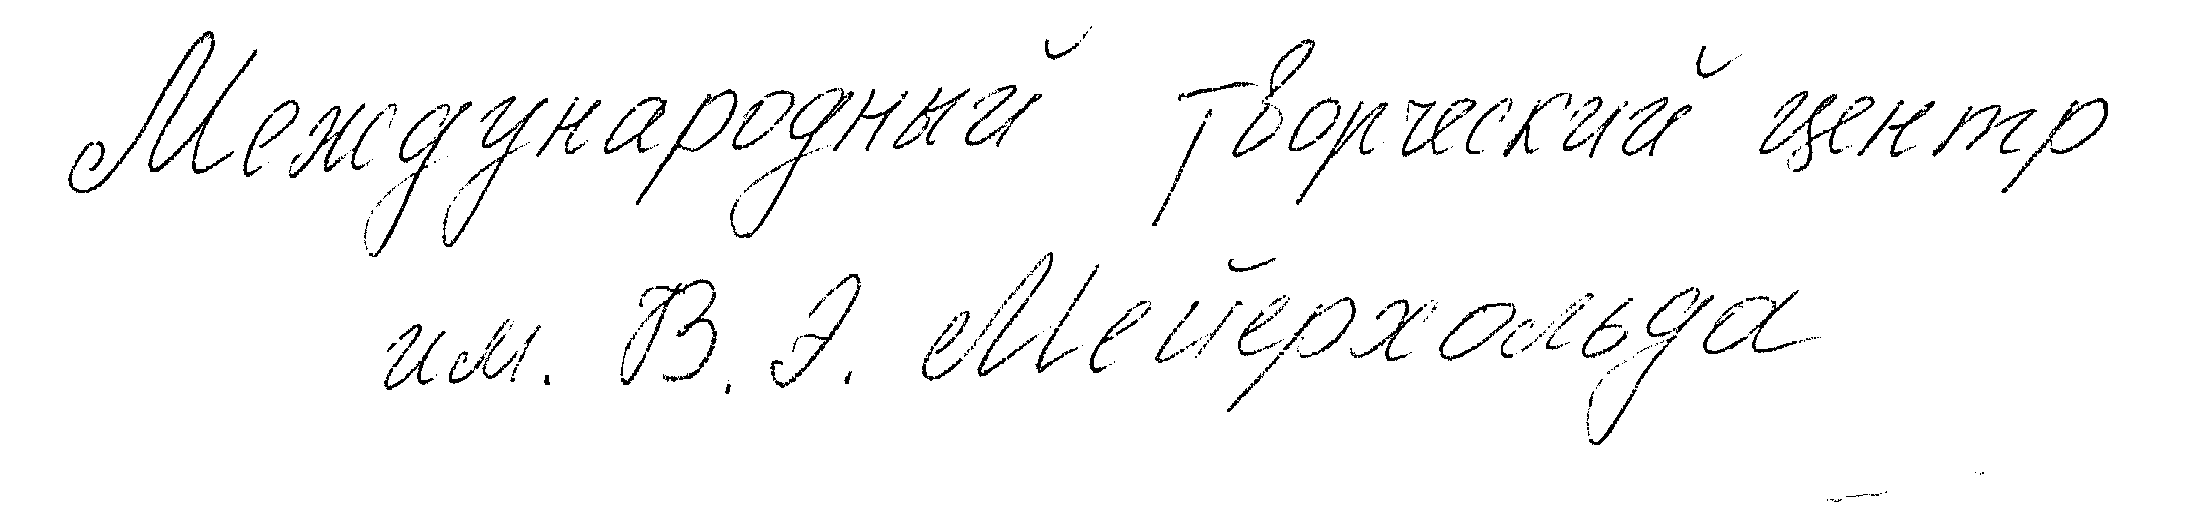 Международный творческий центр
им. В. Э. Мейерхольда